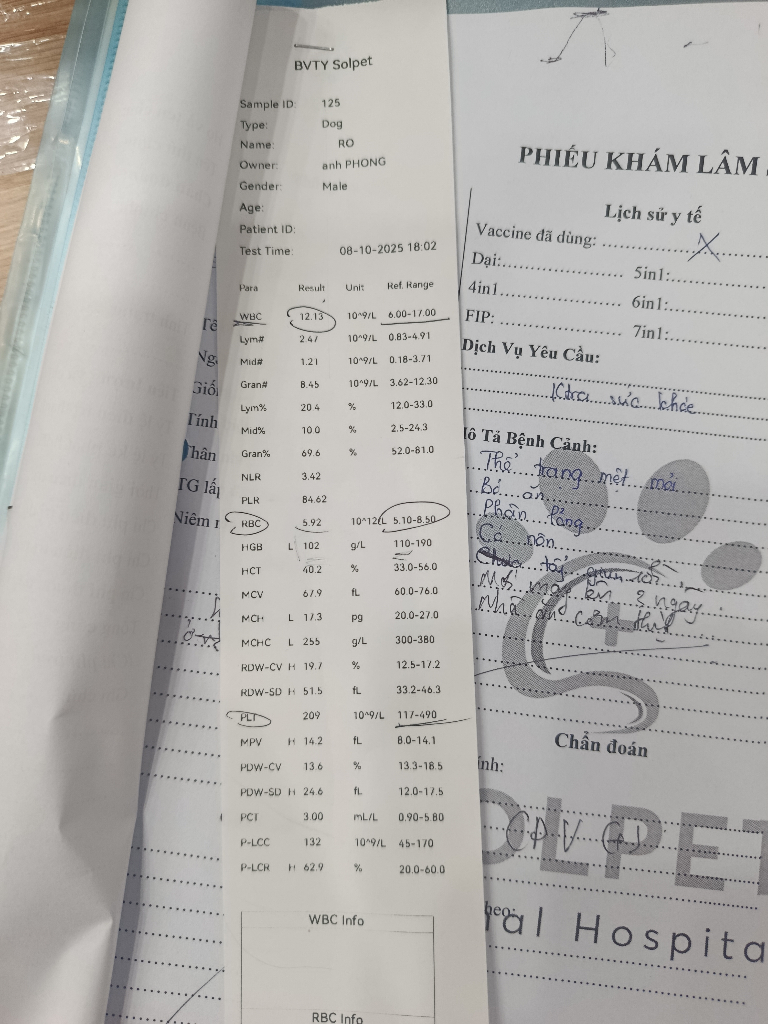 BVTY Solpet
Sample ID: 125
Type: Dog
Name: RO
Owner: anh PHONG
Gender: Male
Age:
Patient ID:
Test Time: 08-10-2025 18:02
Para Result Unit Ref. Range
WBC 12.13 10^9/L 6.00-17.00
Lym# 2.47 10^9/L 0.83-4.91
Mid# 1.21 10^9/L 0.18-3.71
Gran# 8.45 10^9/L 3.62-12.30
Lym% 20.4 % 12.0-33.0
Mid% 10.0 % 2.5-24.3
Gran% 69.6 % 52.0-81.0
NLR 3.42
PLR 84.62
RBC 5.92 10^12/L 5.10-8.50
HGB L 102 g/L 110-190
HCT 40.2 % 33.0-56.0
MCV 67.9 fL 60.0-76.0
MCH L 17.3 pg 20.0-27.0
MCHC L 255 g/L 300-380
RDW-CV H 19.7 % 12.5-17.2
RDW-SD H 51.5 fL 33.2-46.3
PLT 209 10^9/L 117-490
MPV H 14.2 fL 8.0-14.1
PDW-CV 13.6 % 13.3-18.5
PDW-SD H 24.6 fL 12.0-17.5
PCT 3.00 mL/L 0.90-5.80
P-LCC 132 10^9/L 45-170
P-LCR H 62.9 % 20.0-60.0
WBC Info
RBC Info
PHIẾU KHÁM LÂM
Lịch sử y tế
Vaccine đã dùng: X
Dại: 5in1:
4in1 6in1:
FIP: 7in1:
Dịch Vụ Yêu Cầu:
sức khỏe
Mô Tả Bệnh Cảnh:
Thể trạng mệt mỏi
Bỏ ăn
Phân lỏng
Có nôn
Chưa tẩy giun
Mới mua về 3 ngày
Nhà ăn cơm thịt
Chẩn đoán
CPV (+)
OLPET
al Hospita